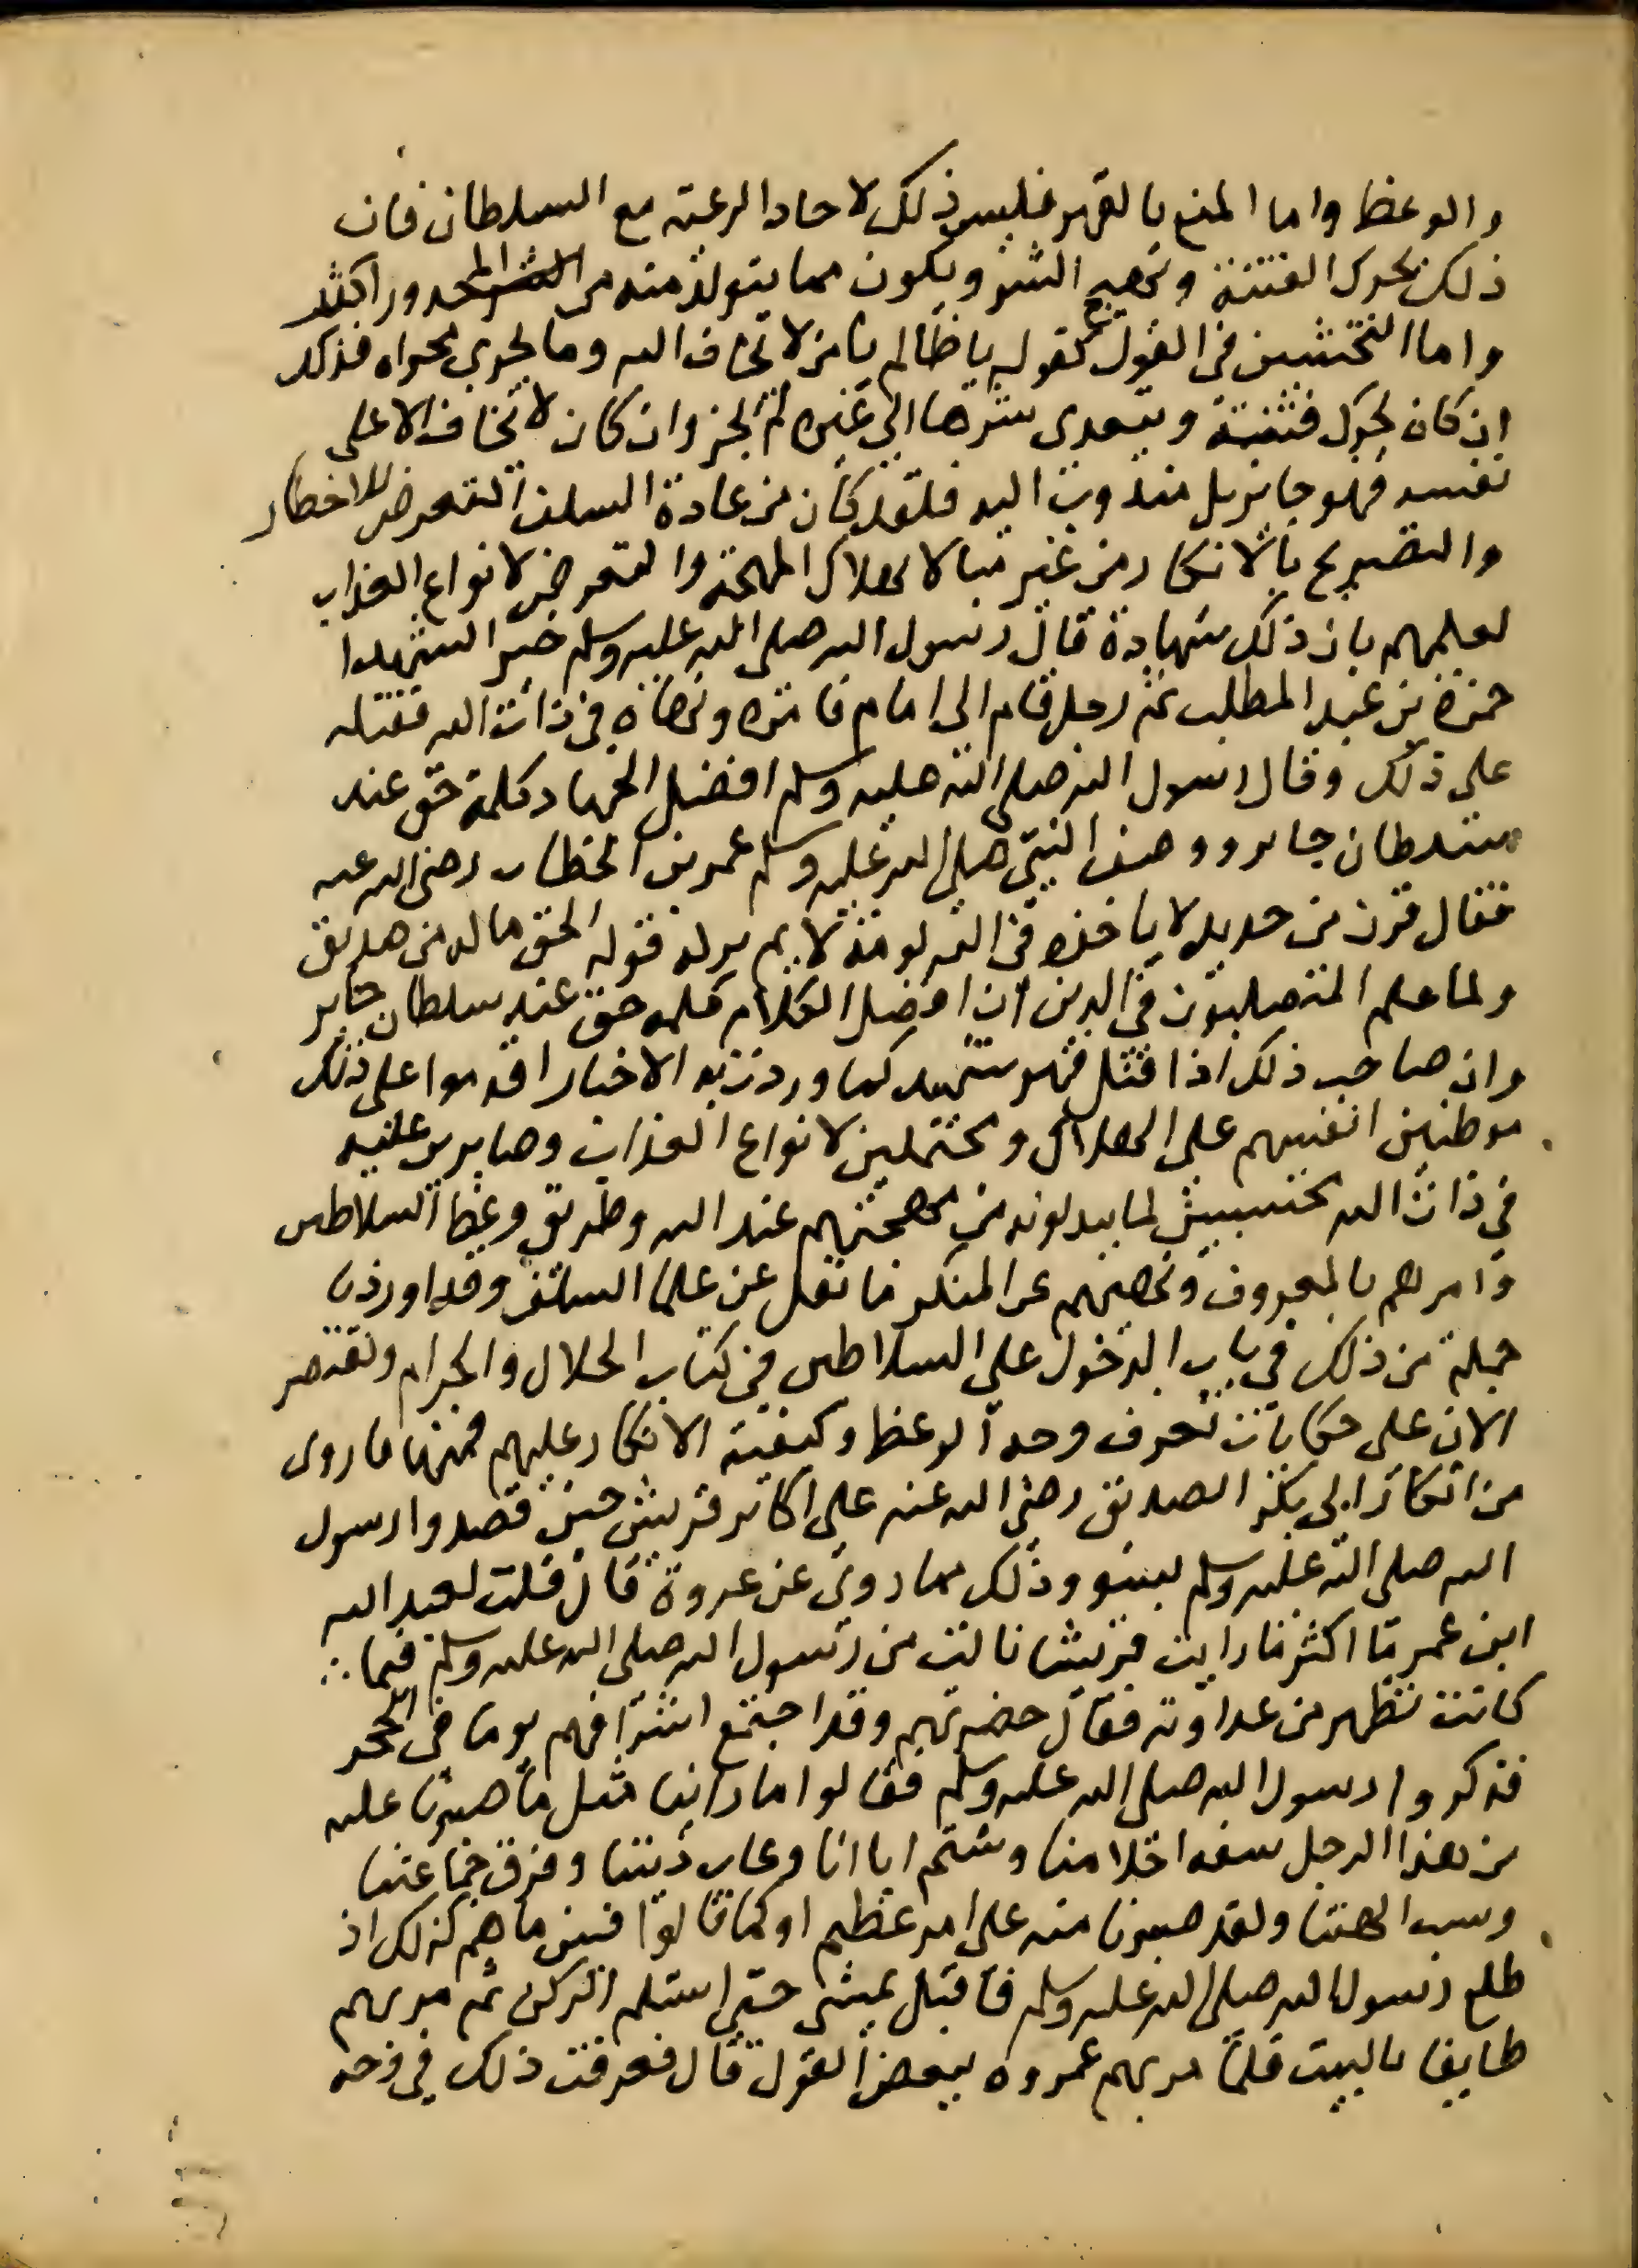 والوعظ واما المنع بالقهر فليس ذلك لاحاد الرعية مع السلطان فان
ذلك يحرك الفتنة ويهيج الشر ويكون مما يتولد منه من المحدور اكثر
واما التخشين في القول كقوله يا ظالم يا من لا يخاف الله وما يجري مجراه فذلك
ان كان يحرك فتنة ويتعدى شرها الي غيره لم يجز وان كان لا يخاف الا على
نفسه فهو جايز بل مندوب اليه فلقد كان من عادة السلف التعرض للاخطار
والتصريح بالانكار من غير مبالا بهلاك المهجة والتعرض لانواع العذاب
لعلمهم بان ذلك شهادة قال رسول الله صلى الله عليه وسلم خير الشهدا
حمزة بن عبد المطلب ثم رجل قام الى امام فامره ونهاه في ذات الله فقتله
على ذلك وقال رسول الله صلى الله عليه وسلم افضل الجهاد كلمة حق عند
سلطان جاير ووصف النبي صلى الله عليه وسلم عمر بن الخطاب رضى الله عنه
فقال قرن من حديد لا ياخذه في الله لومة لايم تركه قوله الحق ما له من صديق
ولما علم المتصلبون في الدين ان افضل الكلام كلمه حق عند سلطان جاير
وان صاحب ذلك اذا قتل فهو شهيد كما وردت به الاخبار اقدموا على ذلك
موطنين انفسهم على الهلاك ومحتملين لانواع العذاب وصابرين عليه
في ذات الله محتسبين لما يبدلونه من مهجتهم عند الله وطريق وعظ السلاطين
وامرهم بالمعروف ونهيهم عن المنكر ما نقل عن علما السلف وقد اوردنا
جملة من ذلك في باب الدخول على السلاطين في كتاب الحلال والحرام ونقتصر
الان على حكايات تعرف وجه الوعظ وكيفية الانكار عليهم فمنها ما روى
من انكار ابي بكر الصديق رضى الله عنه على اكابر قريش حين قصدوا رسول
الله صلى الله عليه وسلم بسو وذلك مما روي عن عروة قال قلت لعبد الله
ابن عمر ما اكثر ما رايت قريشا نالت من رسول الله صلى الله عليه وسلم فيما
كانت تظهر من عداوته فقال حضرتهم وقد اجتمع اشرافهم يوما في الحجر
فذكروا رسول الله صلى الله عليه وسلم فقالوا ما راينا مثل ما صبرنا عليه
من هذا الرجل سفه احلامنا وشتم اباانا وعاب ديننا وفرق جماعتنا
وسب الهتنا ولقد صبرنا منه على امر عظيم او كما قالوا فبين ما هم كذلك اذ
طلع رسول الله صلى الله عليه وسلم فاقبل يمشي حتى استلم الركن ثم مر بهم
طايفا بالبيت فلما مر بهم غمزوه ببعض القول قال فعرفت ذلك في وجه